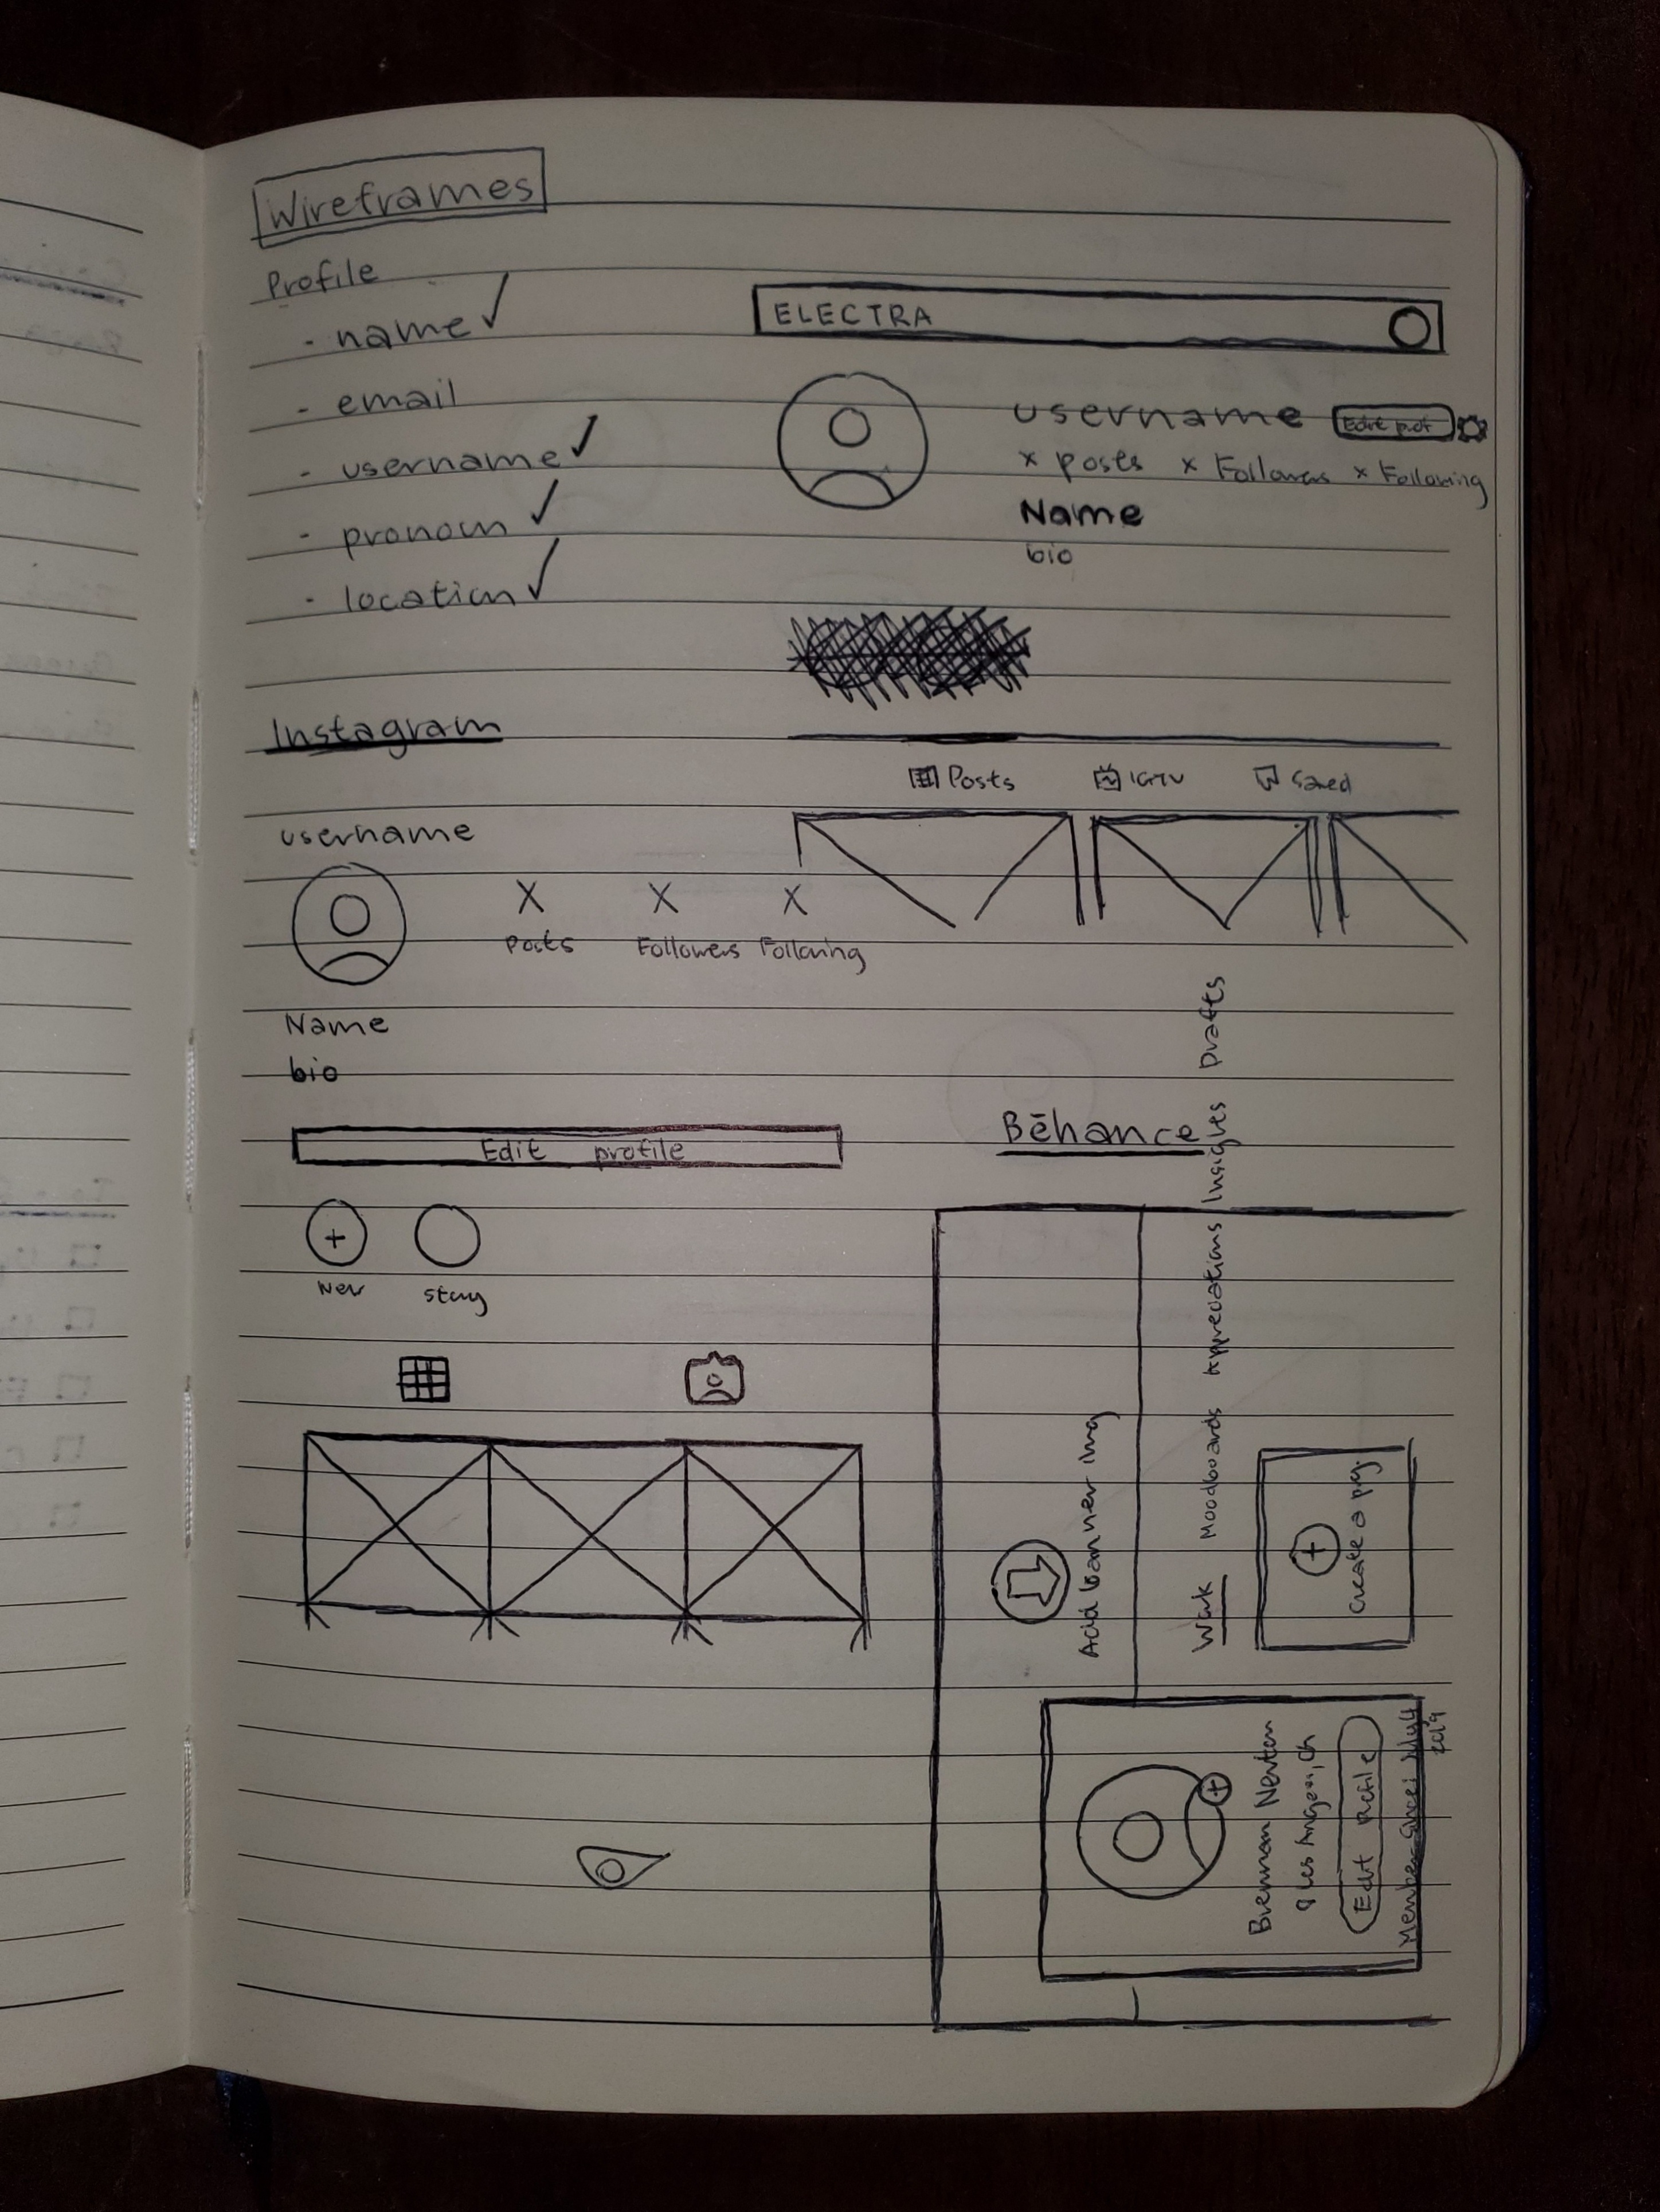 Wireframes
Profile
- name ✓
- email
- username ✓
- pronoun ✓
- location ✓
ELECTRA
username Edit prof
x posts x Followers x Following
Name
bio
Posts IGTV Saved
Instagram
username
X X X
Posts Followers Following
Name
bio
Edit profile
+
New Story
Bēhance
Add banner img
Work Moodboards Appreciations Insights Drafts
+
Create a proj.
+
Brennan
Los Angeles, CA
Edit Profile
Member Since: July 4
2019